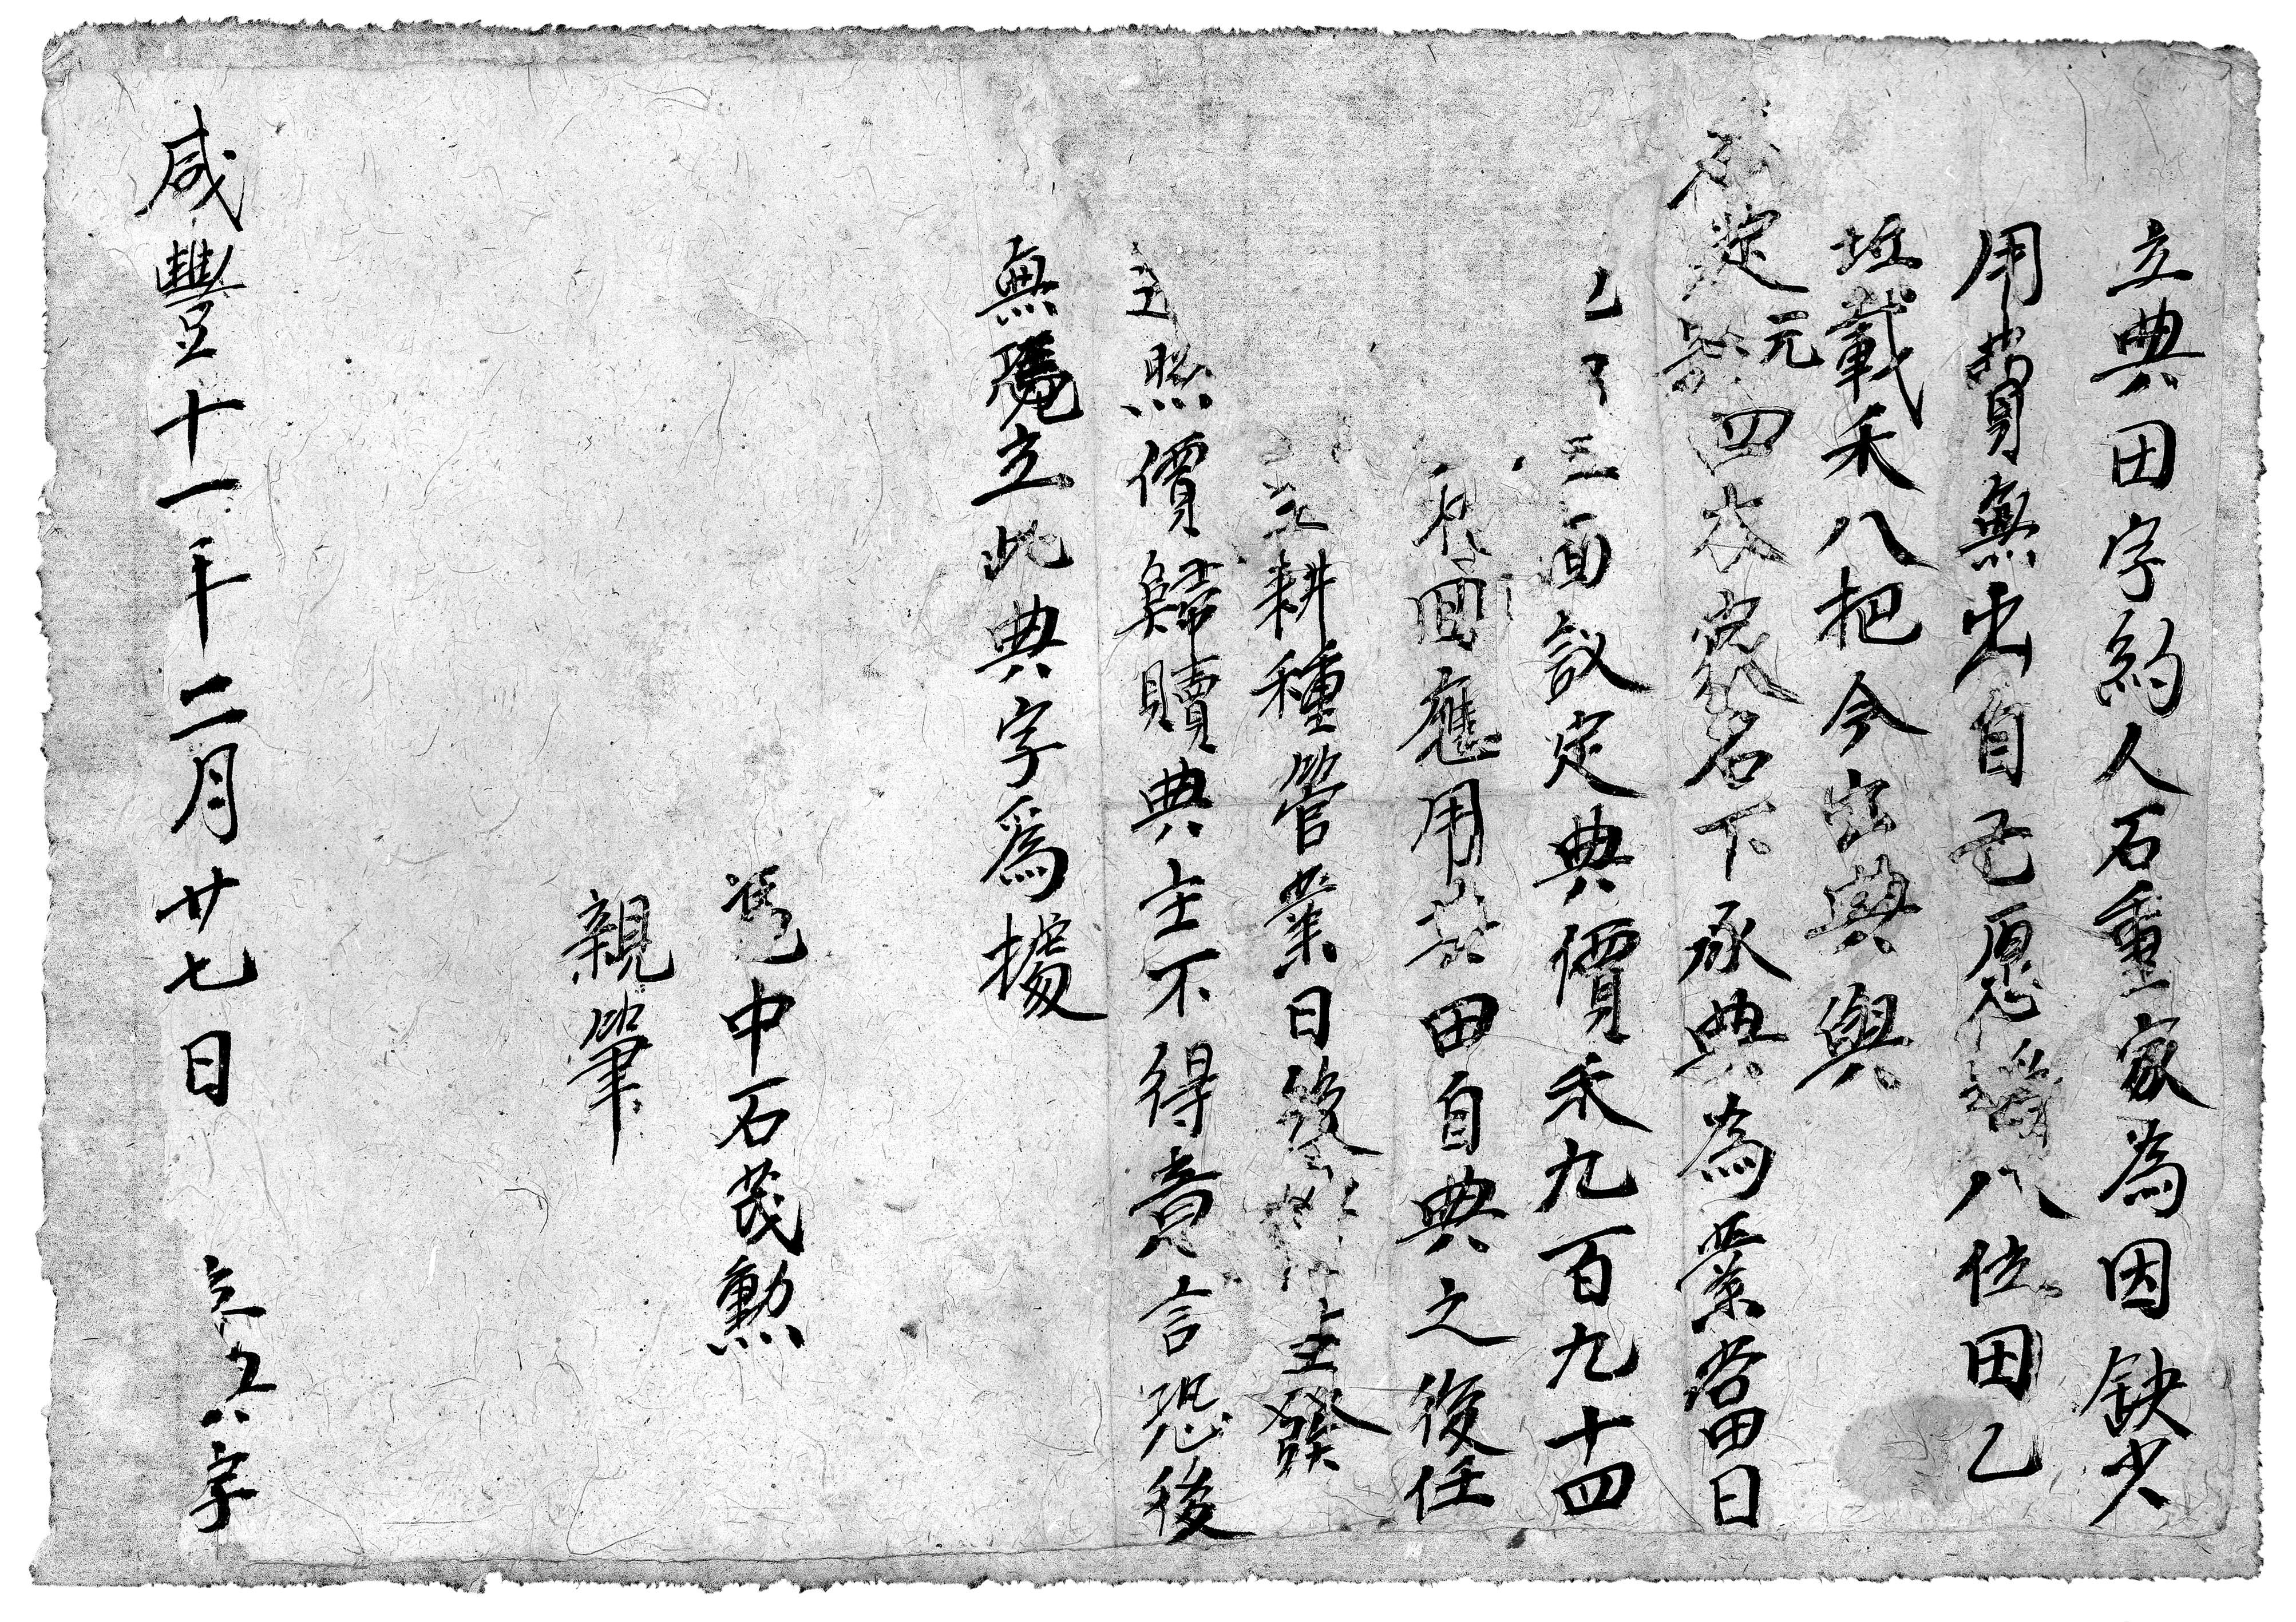 立典田字約人石重家為因缺少
用費無出自己愿將八位田乙
坵載禾八把今出典與
定元四本家名下承典為業當日
三面議定典價禾九百九十四
回應用其田自典之後任
主耕種管業日後主發
照價歸贖典主不得責言恐後
無憑立此典字為據
憑中石茂勲
親筆
咸豐十一年二月廿七日
立字